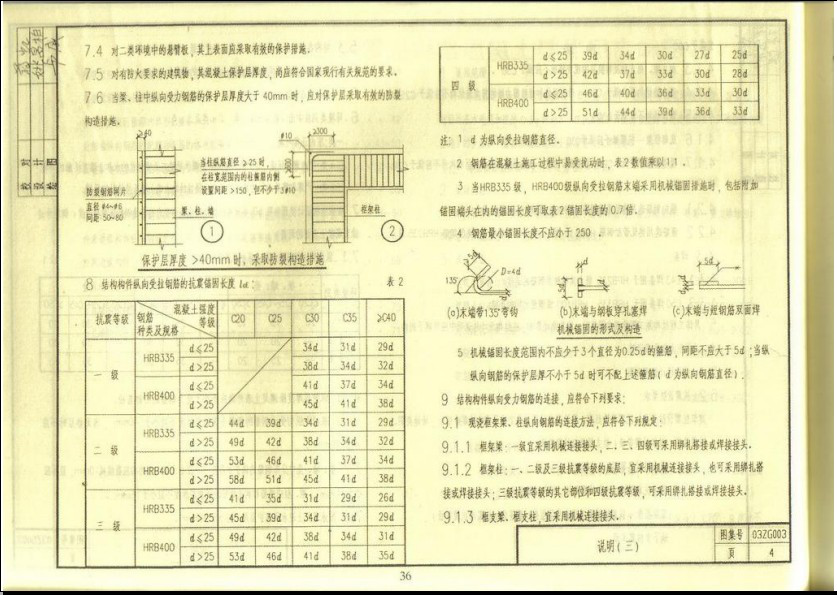 7.4 对二类环境中的悬臂板，其上表面应采取有效的保护措施。
7.5 对有防火要求的建筑物，其混凝土保护层厚度，尚应符合国家现行有关规范的要求。
7.6 当梁、柱中纵向受力钢筋的保护层厚度大于 40mm 时，应对保护层采取有效的防裂
构造措施。
>40
防裂钢筋网片
直径 φ4~φ6
间距 50~80
当柱纵筋直径 ≥25 时，
在柱宽范围内的柱箍筋内侧
设置间距 >150，但不少于3φ10
梁、柱、墙
1
φ10
≥300
≥300
框架柱
2
保护层厚度 >40mm 时，采取防裂构造措施
8 结构构件纵向受拉钢筋的抗震锚固长度 laE 表 2
抗震等级 钢筋种类及规格 混凝土强度等级 C20 C25 C30 C35 ≥C40
一 级 HRB335 d≤25 34d 31d 29d
d>25 38d 34d 32d
HRB400 d≤25 41d 37d 34d
d>25 45d 41d 38d
二 级 HRB335 d≤25 44d 39d 34d 31d 29d
d>25 49d 42d 38d 34d 32d
HRB400 d≤25 53d 46d 41d 37d 34d
d>25 58d 51d 45d 41d 38d
三 级 HRB335 d≤25 41d 35d 31d 29d 26d
d>25 45d 39d 34d 31d 29d
HRB400 d≤25 49d 42d 38d 34d 31d
d>25 53d 46d 41d 38d 35d
四 级 HRB335 d≤25 39d 34d 30d 27d 25d
d>25 42d 37d 33d 30d 28d
HRB400 d≤25 46d 40d 36d 33d 30d
d>25 51d 44d 39d 36d 33d
注: 1 d 为纵向受拉钢筋直径。
2 钢筋在混凝土施工过程中易受扰动时，表2数值乘以1.1 。
3 当HRB335 级，HRB400级纵向受拉钢筋末端采用机械锚固措施时，包括附加
锚固端头在内的锚固长度可取表2 锚固长度的0.7倍。
4 钢筋最小锚固长度不应小于 250 。
135°
D=4d
5d
(a)末端带135°弯钩
(b)末端与钢板穿孔塞焊
(c)末端与短钢筋双面焊
机械锚固的形式及构造
5 机械锚固长度范围内不应少于3 个直径为0.25d的箍筋，间距不应大于 5d ;当纵
纵向钢筋的保护层厚不小于 5d 时可不配上述箍筋( d 为纵向钢筋直径)。
9 结构构件纵向受力钢筋的连接，应符合下列要求:
9.1 现浇框架梁、柱纵向钢筋的连接方法，应符合下列规定:
9.1.1 框架梁: 一级宜采用机械连接接头，二、三、四级可采用绑扎搭接或焊接接头。
9.1.2 框架柱: 一、二级及三级抗震等级的底层，宜采用机械连接接头，也可采用绑扎搭
接或焊接接头；三级抗震等级的其它部位和四级抗震等级，可采用绑扎搭接或焊接接头。
9.1.3 框支梁、框支柱，宜采用机械连接接头。
说明(三)
图集号 03ZG003
页 4
36